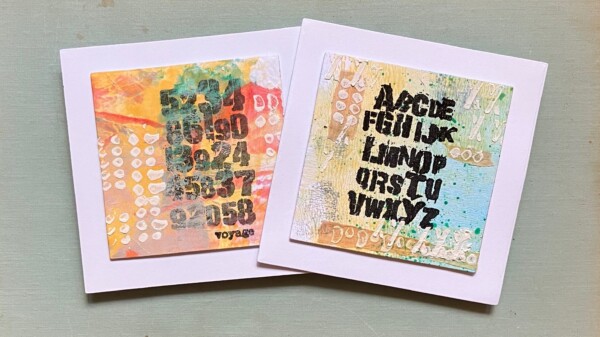 5234
86190
13924
45837
92058
voyage
ABCDE
FGHIJK
LMNOP
QRSTU
VWXYZ